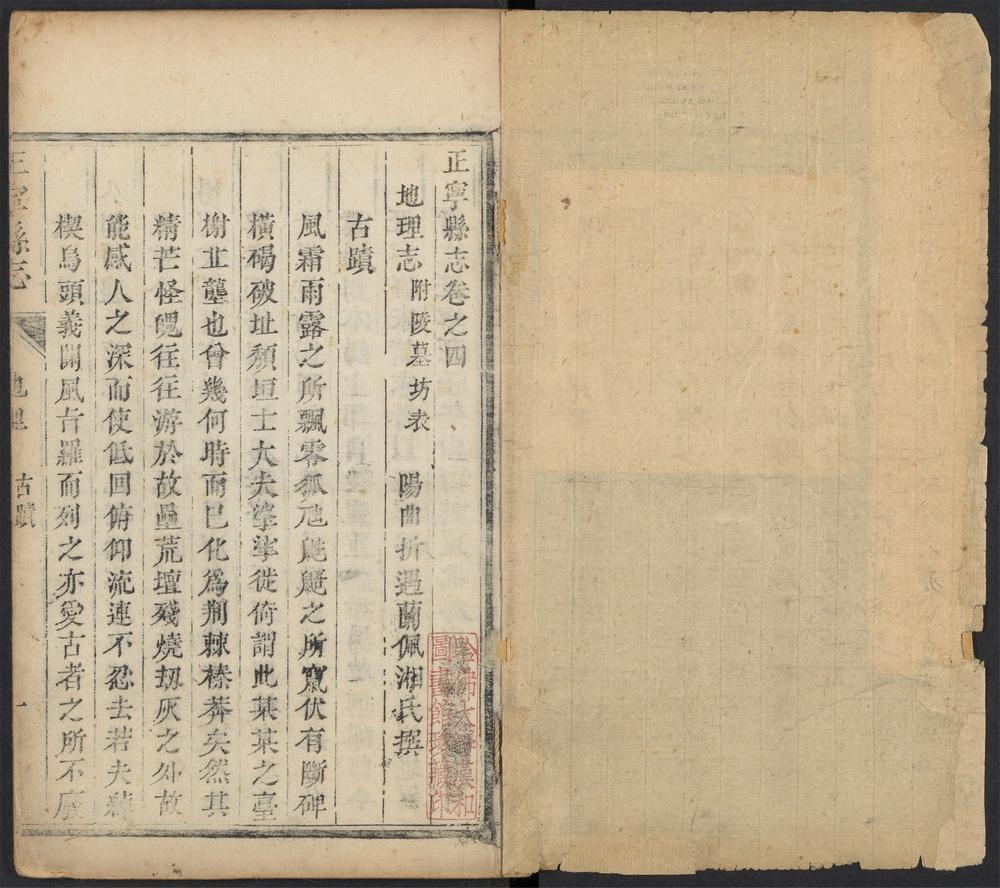 正寧縣志卷之四
地理志 附陵墓坊表 陽曲折遇蘭佩湘氏撰
古蹟
風霜雨露之所飄零狐虺鼪鼯之所竄伏有斷碑
橫碣破址頹垣士大夫拏拏徙倚謂此某某之臺
榭丘壟也曾幾何時而已化為荆棘榛莽矣然其
精芒怪魄往往游於故壘荒壇殘燒刼灰之外故
能感人之深而使低回俯仰流連不忍去若夫綽
楔烏頭義關風旨羅而列之亦愛古者之所不廢
正寧縣志 地理 古蹟 一
哈佛大學漢和
圖書館珍藏印